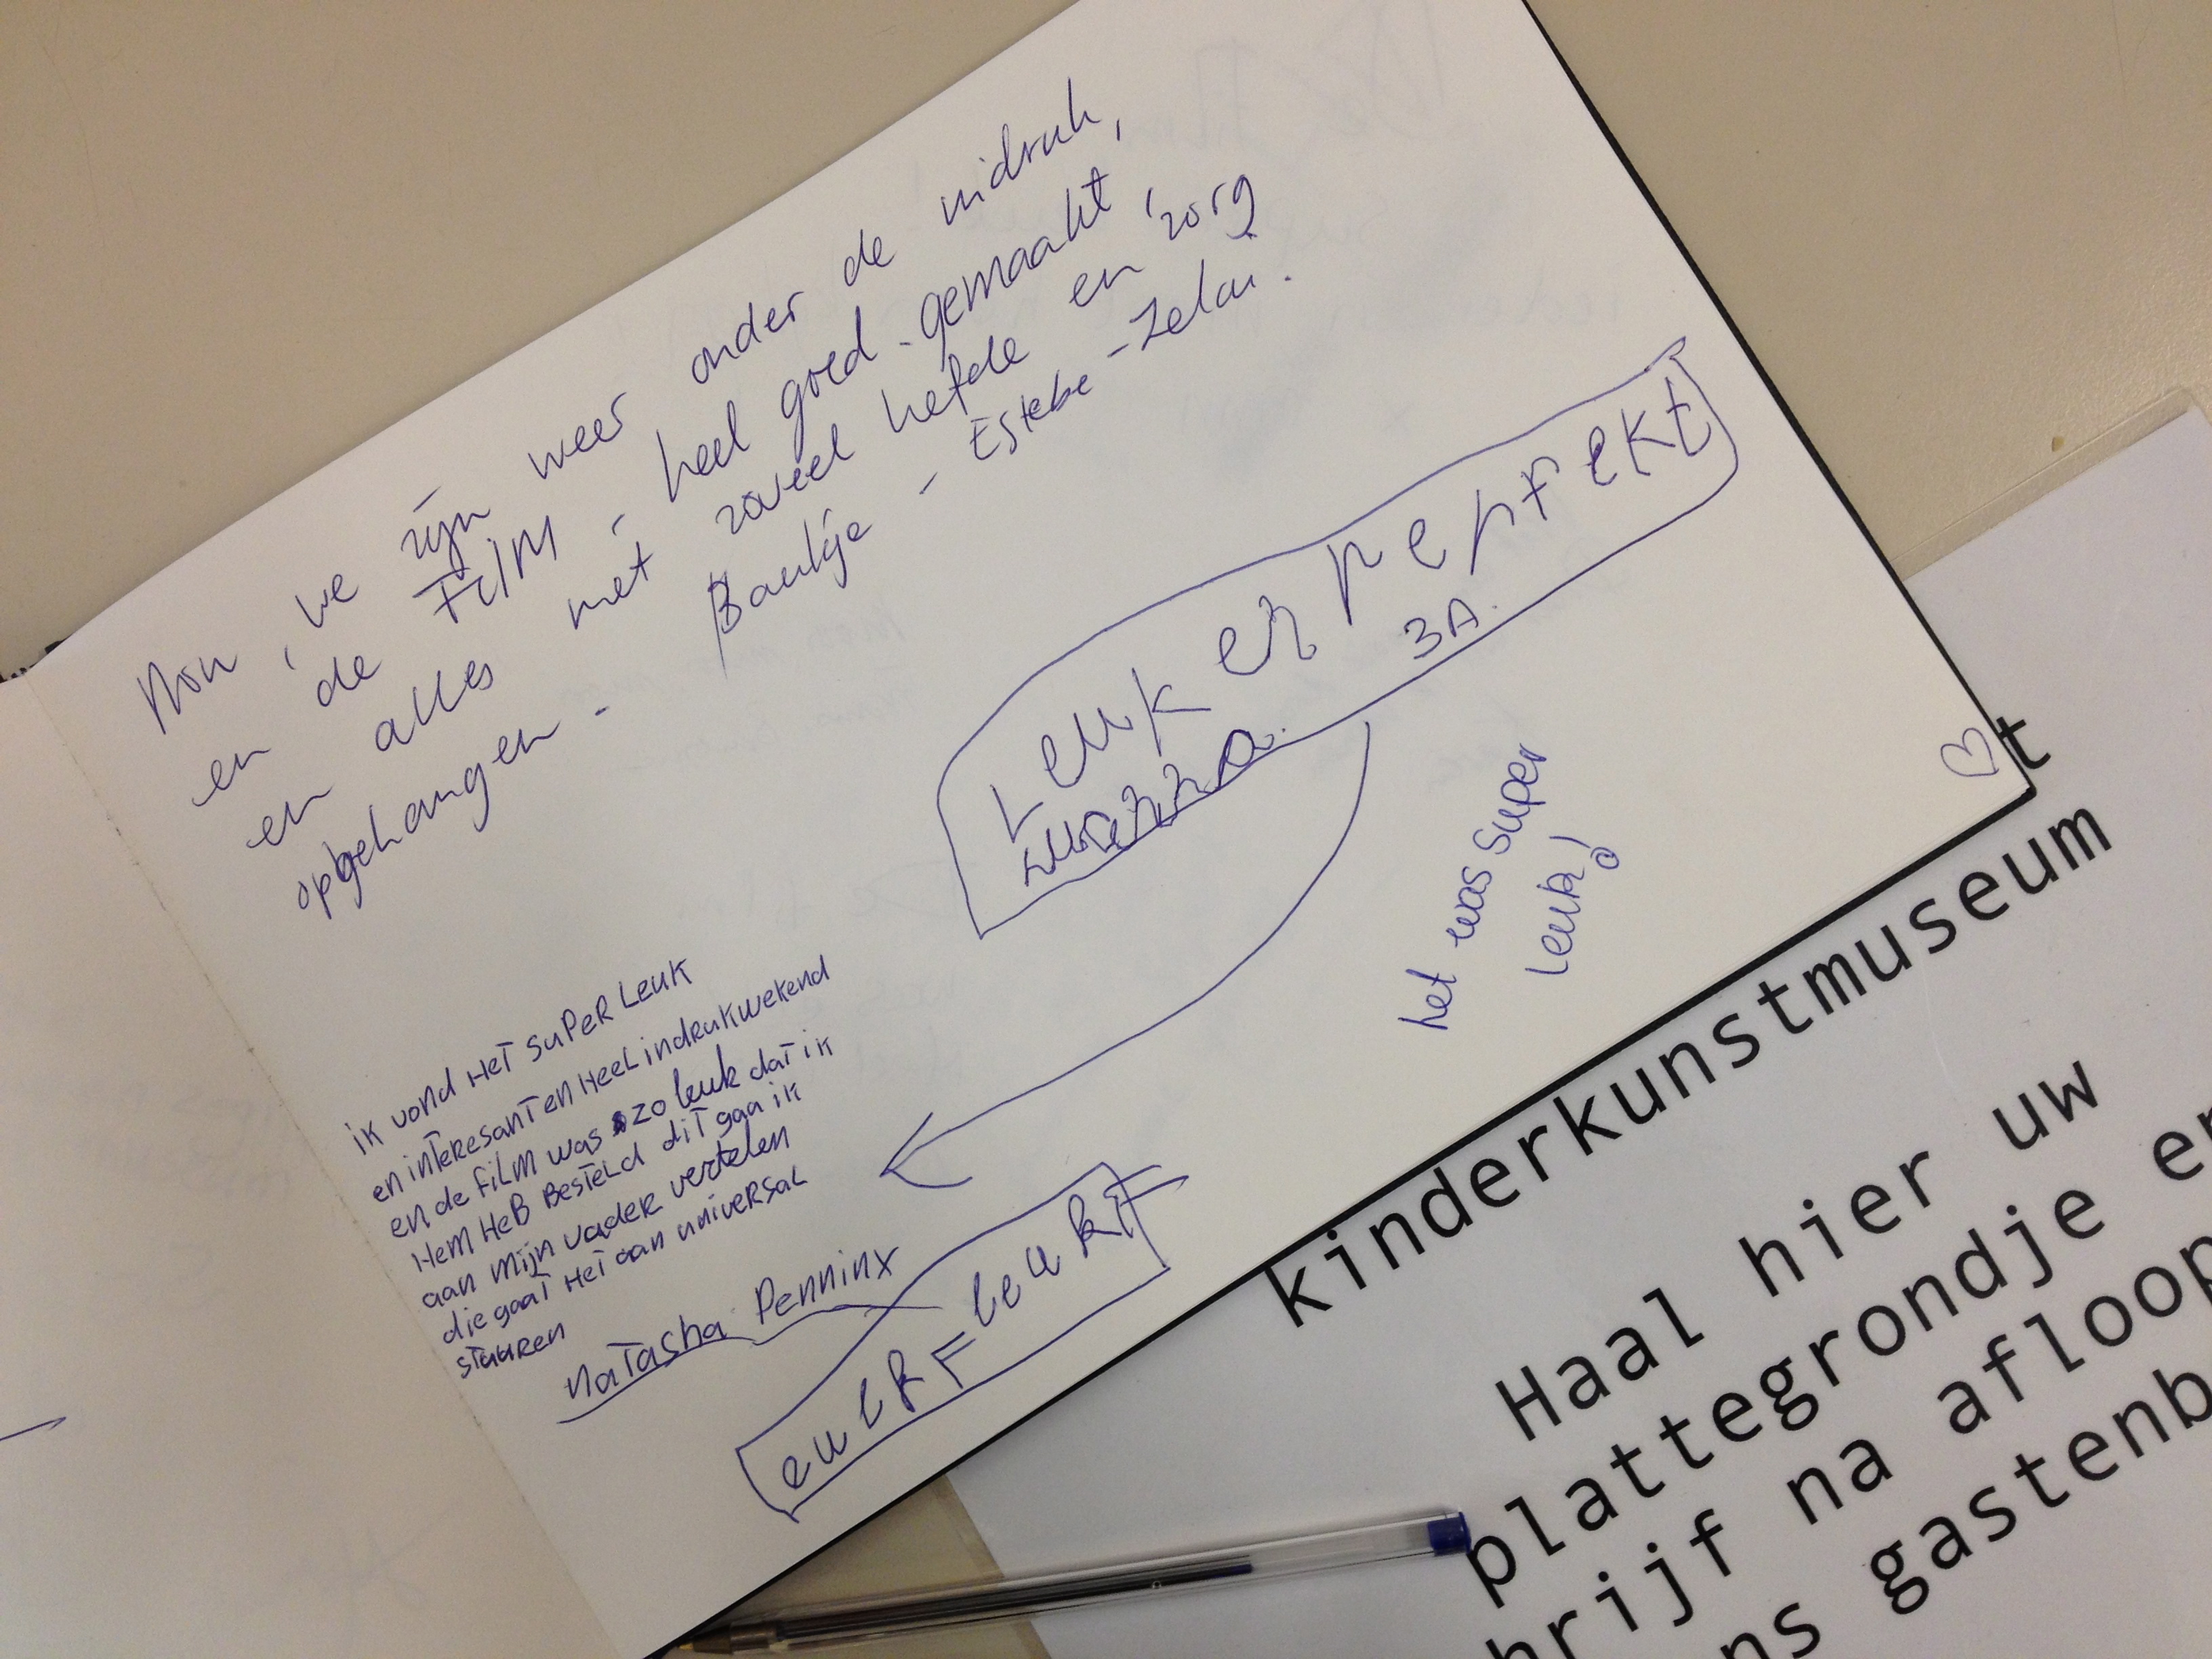 Mon, we zijn weer onder de indruk,
en de Film - heel goed - gemaakt,
en alles met zoveel liefde en zorg
opgehangen -
Baukje - Estebe - Zelai.
Leuk en perfekt
3A.
het was super
leuk!
ik vond HeT SuPeR Leuk
en inTeResanT en Heel indrukwekend
en de FiLm was zo leuk dat ik
Hem HeB BesTeLd diT gaa ik
aan mijn vadeR vertelen
die gaaT HeT aan univeRsaL
sTuuRen
NaTasha Penninx
leuk
kinderkunstmuseum
Haal hier uw
plattegrondje en
hrijf na afloop
ns gastenb